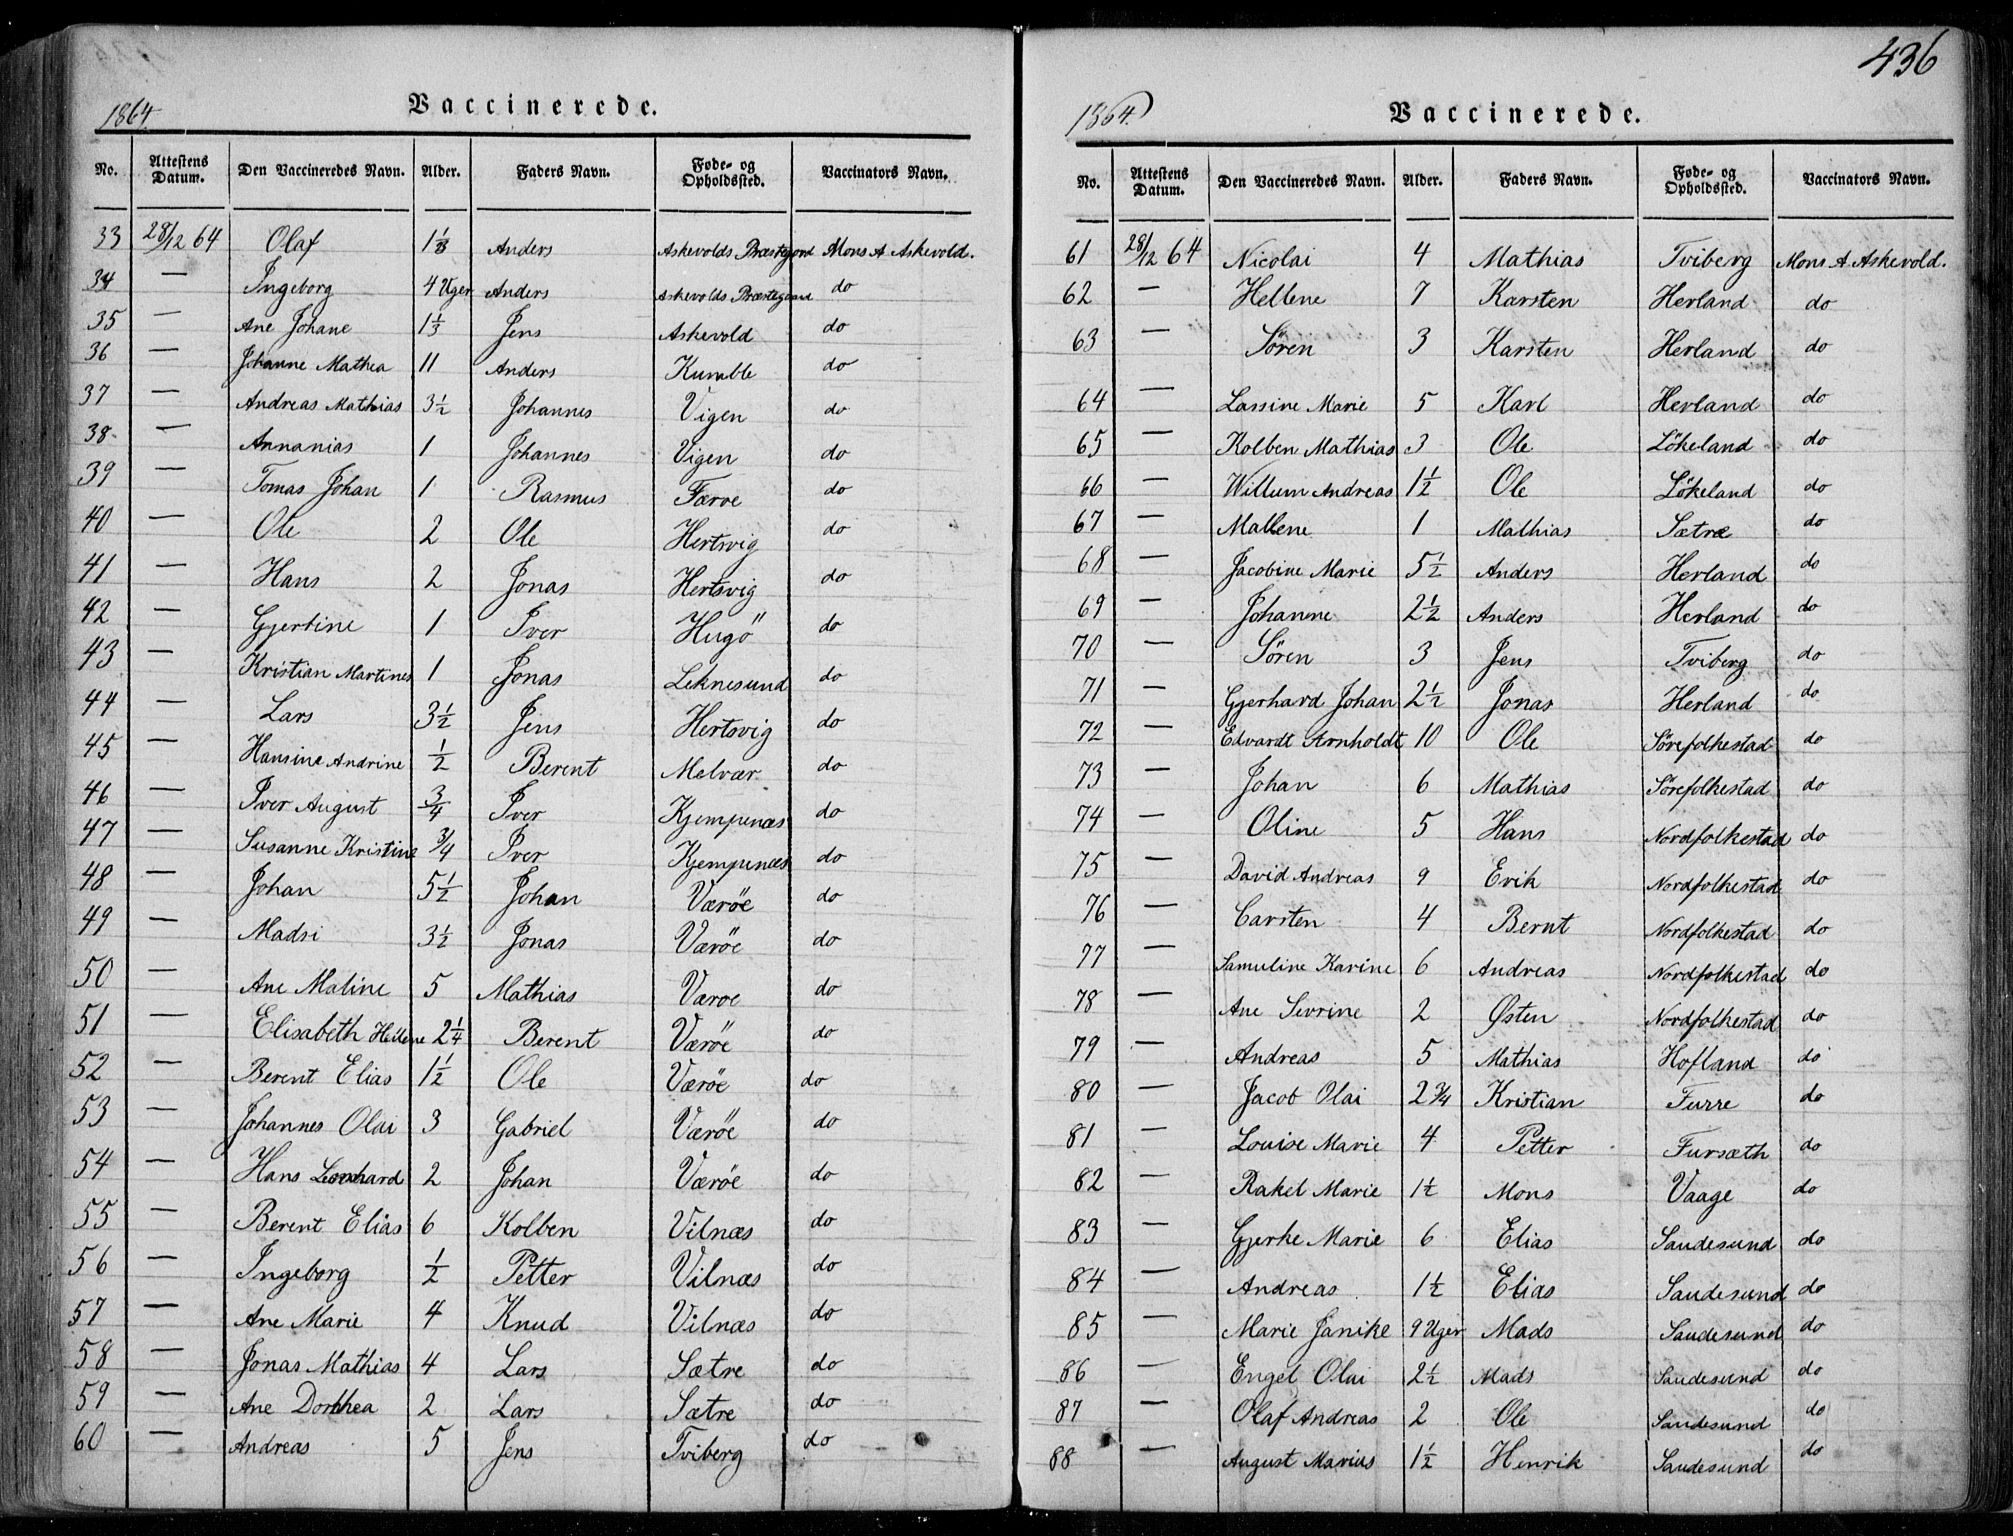 436
1864.
Vaccinerede.
No. Attestens Datum. Den Vaccineredes Navn. Alder. Faders Navn. Føde- og Opholdssted. Vaccinators Navn.
33 28/12 64 Olaf 1 1/3 Anders Askevolds Præstegaard Mons A Askevold.
34 — Ingeborg 4 Uger Anders Askevolds Præstegaard do
35 — Ane Johane 1 1/3 Jens Askevold do
36 — Johanne Mathea 11 Anders Kumble do
37 — Andreas Mathias 3 1/2 Johannes Vigen do
38 — Annanias 1 Johannes Vigen do
39 — Tomas Johan 1 Rasmus Færøe do
40 — Ole 2 Ole Hertsvig do
41 — Hans 2 Jonas Hertsvig do
42 — Gjertine 1 Iver Hugö do
43 — Kristian Martines 1 Jonas Leknesund do
44 — Lars 3 1/2 Jens Hertsvig do
45 — Hansine Andrine 1/2 Berent Melvær do
46 — Iver August 3/4 Iver Kjempenæs do
47 — Susanne Kristine 3/4 Iver Kjempenæs do
48 — Johan 5 1/2 Johan Væröe do
49 — Madsi 3 1/2 Jonas Væröe do
50 — Ane Maline 5 Mathias Værøe do
51 — Elisabeth Hellene 2 1/4 Berent Væröe do
52 — Berent Elias 1 1/2 Ole Væröe do
53 — Johannes Olai 3 Gabriel Væröe do
54 — Hans Leonhard 2 Johan Væröe do
55 — Berent Elias 6 Kolben Vilnæs do
56 — Ingeborg 1/2 Petter Vilnæs do
57 — Ane Marie 4 Knud Vilnæs do
58 — Jonas Mathias 4 Lars Sætre do
59 — Ane Dorthea 2 Lars Sætre do
60 — Andreas 5 Jens Tviberg do
1864.
Vaccinerede.
No. Attestens Datum. Den Vaccineredes Navn. Alder. Faders Navn. Føde- og Opholdssted. Vaccinators Navn.
61 28/12 64 Nicolai 4 Mathias Tviberg Mons A Askevold.
62 — Hellene 7 Karsten Herland do
63 — Sören 3 Karsten Herland do
64 — Lassine Marie 5 Karl Herland do
65 — Kolben Mathias 3 Ole Lökeland do
66 — Willum Andreas 1 1/2 Ole Lökeland do
67 — Mallene 1 Mathias Sætre do
68 — Jacobine Marie 5 1/2 Anders Herland do
69 — Johanne 2 1/2 Anders Herland do
70 — Sören 3 Jens Tviberg do
71 — Gjerhard Johan 2 1/2 Jonas Herland do
72 — Edvardt Arnholdt 10 Ole Sörefolkestad do
73 — Johan 6 Mathias Sörefolkestad do
74 — Oline 5 Hans Nordfolkestad do
75 — David Andreas 9 Erik Nordfolkestad do
76 — Carsten 4 Bernt Nordfolkestad do
77 — Samuline Karine 6 Andreas Nordfolkestad do
78 — Ane Sevrine 2 Østen Nordfolkestad do
79 — Andreas 5 Mathias Hofland do
80 — Jacob Olai 2 3/4 Kristian Furre do
81 — Louise Marie 4 Petter Fursæth do
82 — Rakel Marie 1 1/2 Mons Vaage do
83 — Gjerke Marie 6 Elias Sandesund do
84 — Andreas 1 1/2 Elias Sandesund do
85 — Marie Janike 9 Uger Mads Sandesund do
86 — Engel Olai 2 1/2 Mads Sandesund do
87 — Olaf Andreas 2 Ole Sandesund do
88 — August Marius 1 1/2 Henrik Sandesund do